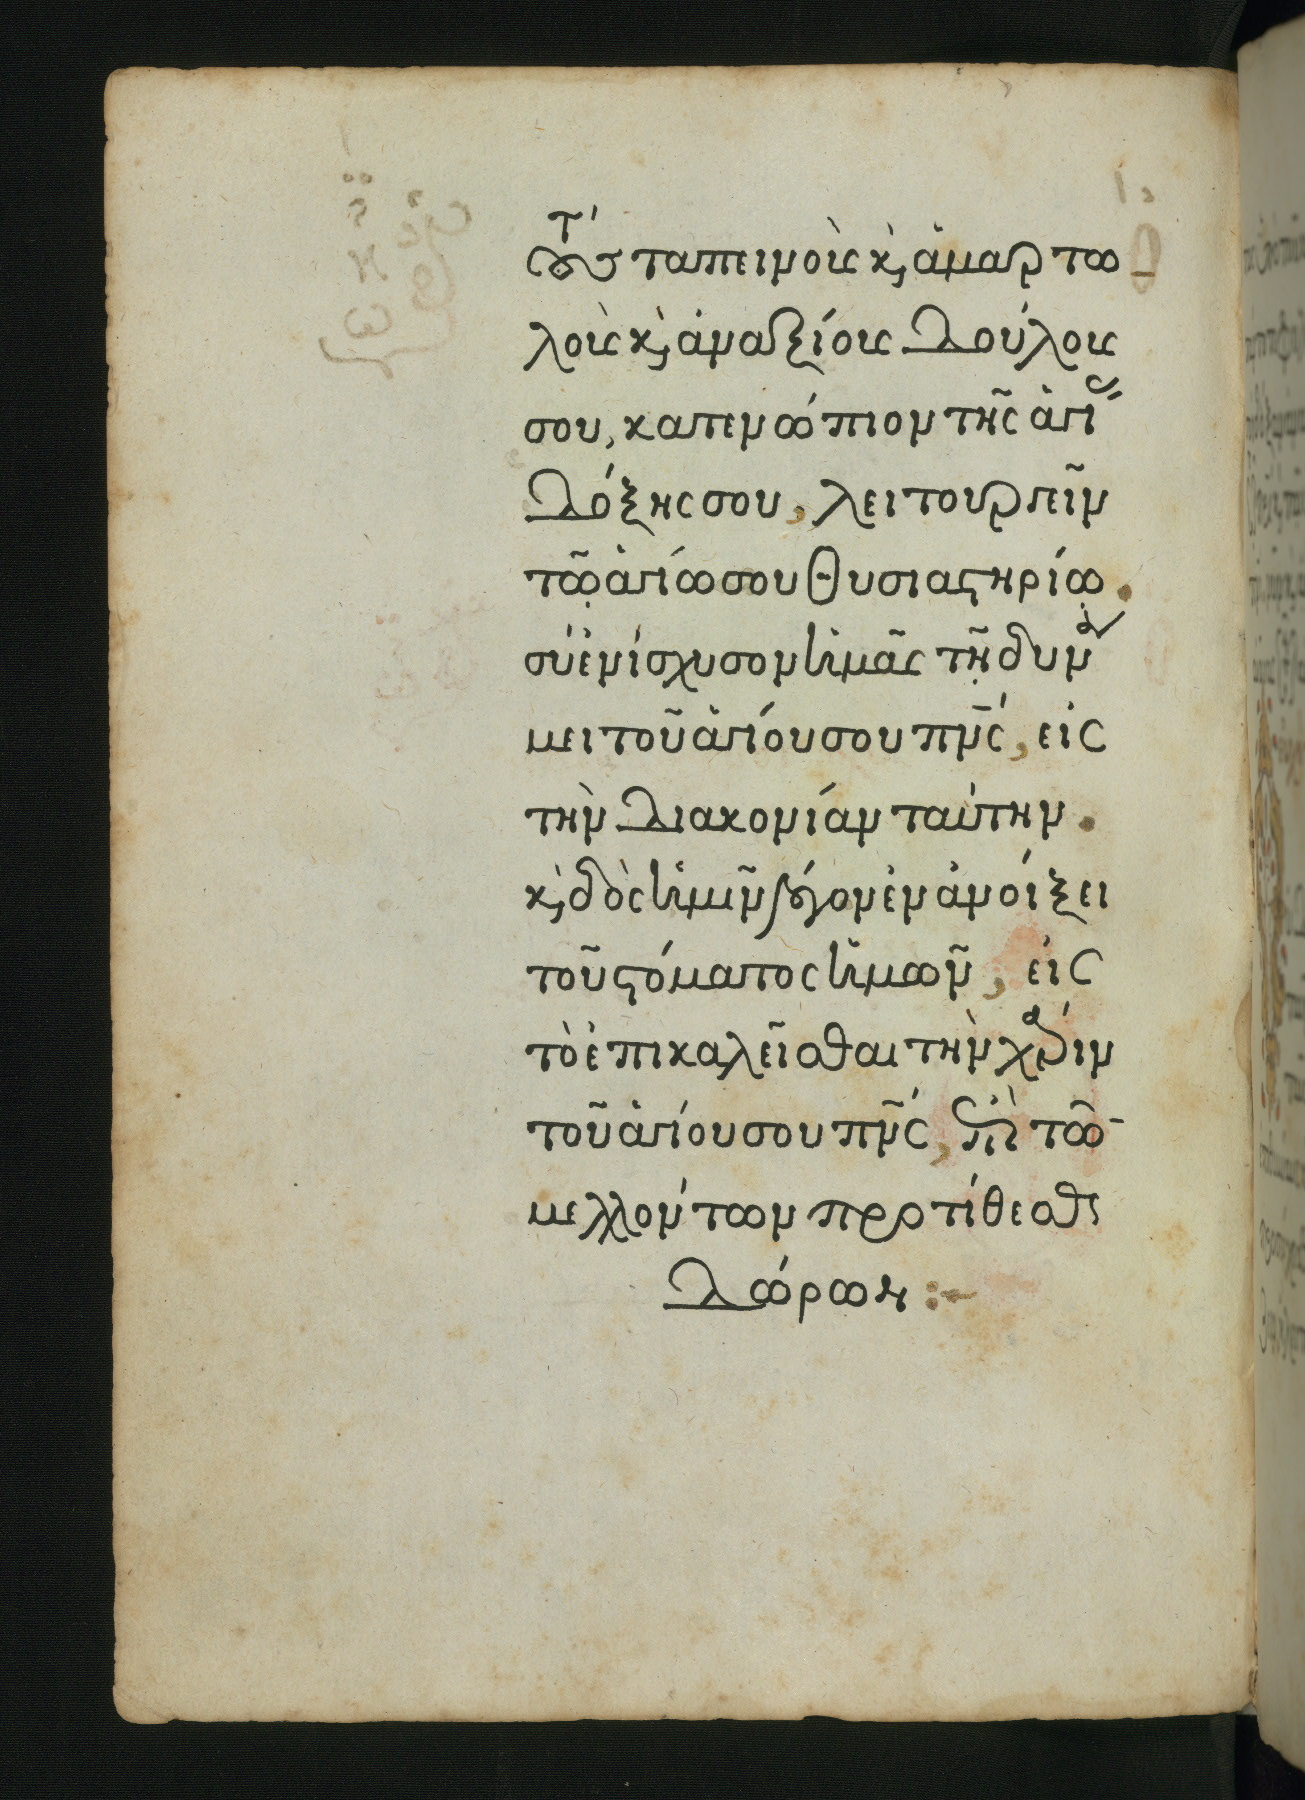 τοῖς ταπεινοῖς κ̀ ἁμαρτω
λοῖς κ̀ ἀναξίοις δούλοις
σου, κατενώπιον τῆς ἁγί
δόξης σου, λειτουργεῖν
τῶ ἁγίω σου θυσιαστηρίω.
σὺ ἐνίσχυσον ἡμᾶς τῇ δυνά
μει τοῦ ἁγίου σου πν̅ς, εἰς
τὴν διακονίαν ταύτην.
κ̀ δὸς ἡμῖν λόγον ἐν ἀνοίξει
τοῦ στόματος ἡμῶν, εἰς
τὸ ἐπικαλεῖσθαι τὴν χάριν
τοῦ ἁγίου σου πν̅ς, ἐπὶ τῶν
μελλόντων προτίθεσθαι
δώρων :-